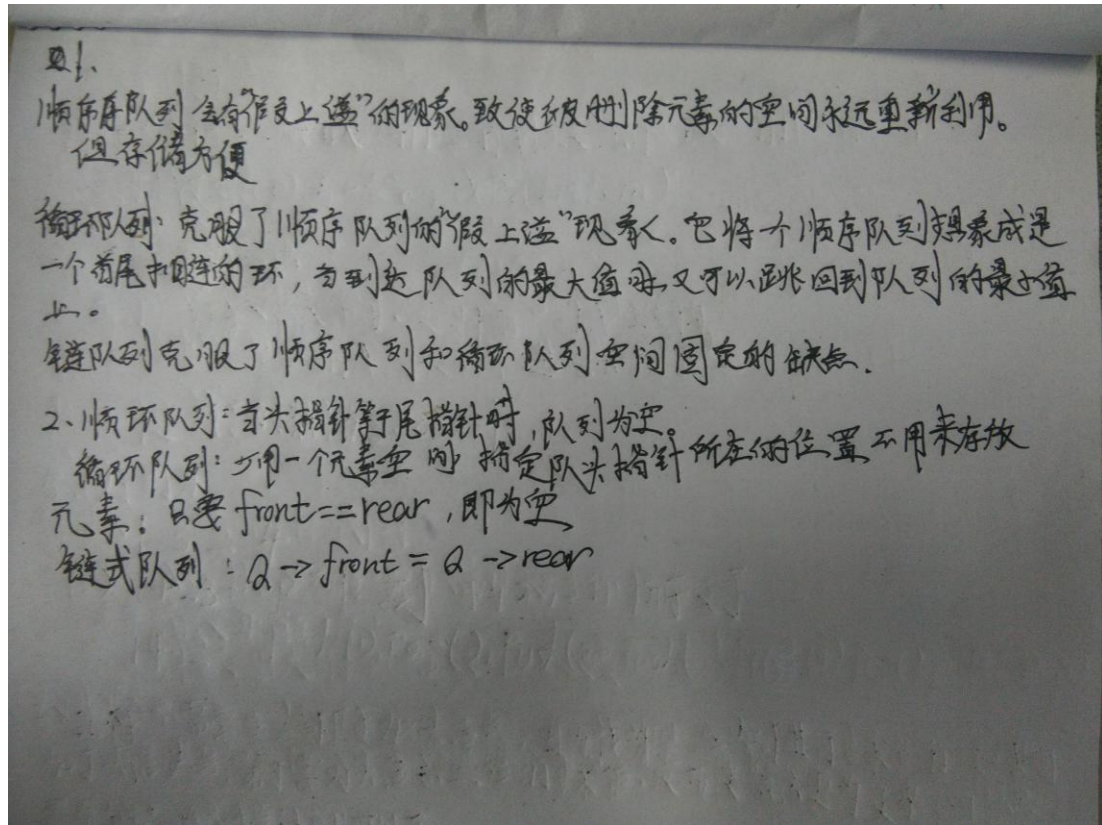 1.
顺序存队列会有“假上溢”的现象。致使被删除元素的空间永远重新利用。
但存储方便
循环队列：克服了顺序队列的“假上溢”现象。它将一个顺序队列想象成是
一个首尾相连的环，当到达队列的最大值时，又可以跳回到队列的最小值
上。
链队列克服了顺序队列和循环队列空间固定的缺点.
2、顺环队列：当头指针等于尾指针时，队列为空。
循环队列：少用一个元素空间，指定队头指针所在的位置不用来存放
元素；只要front==rear，即为空
链式队列：Q→front = Q→rear